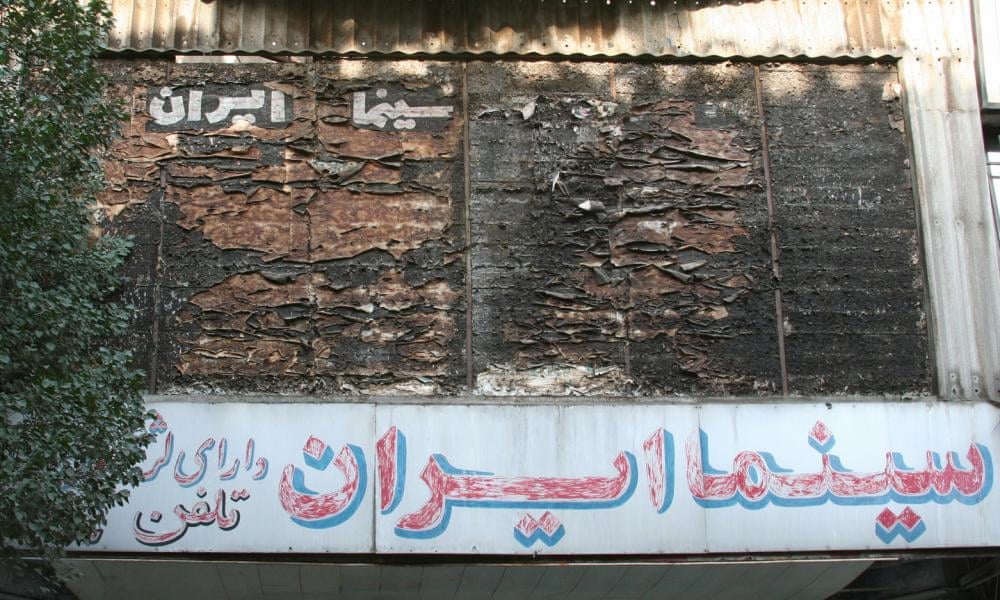 سینما ایران
سینما ایران
دارای لژ
تلفن